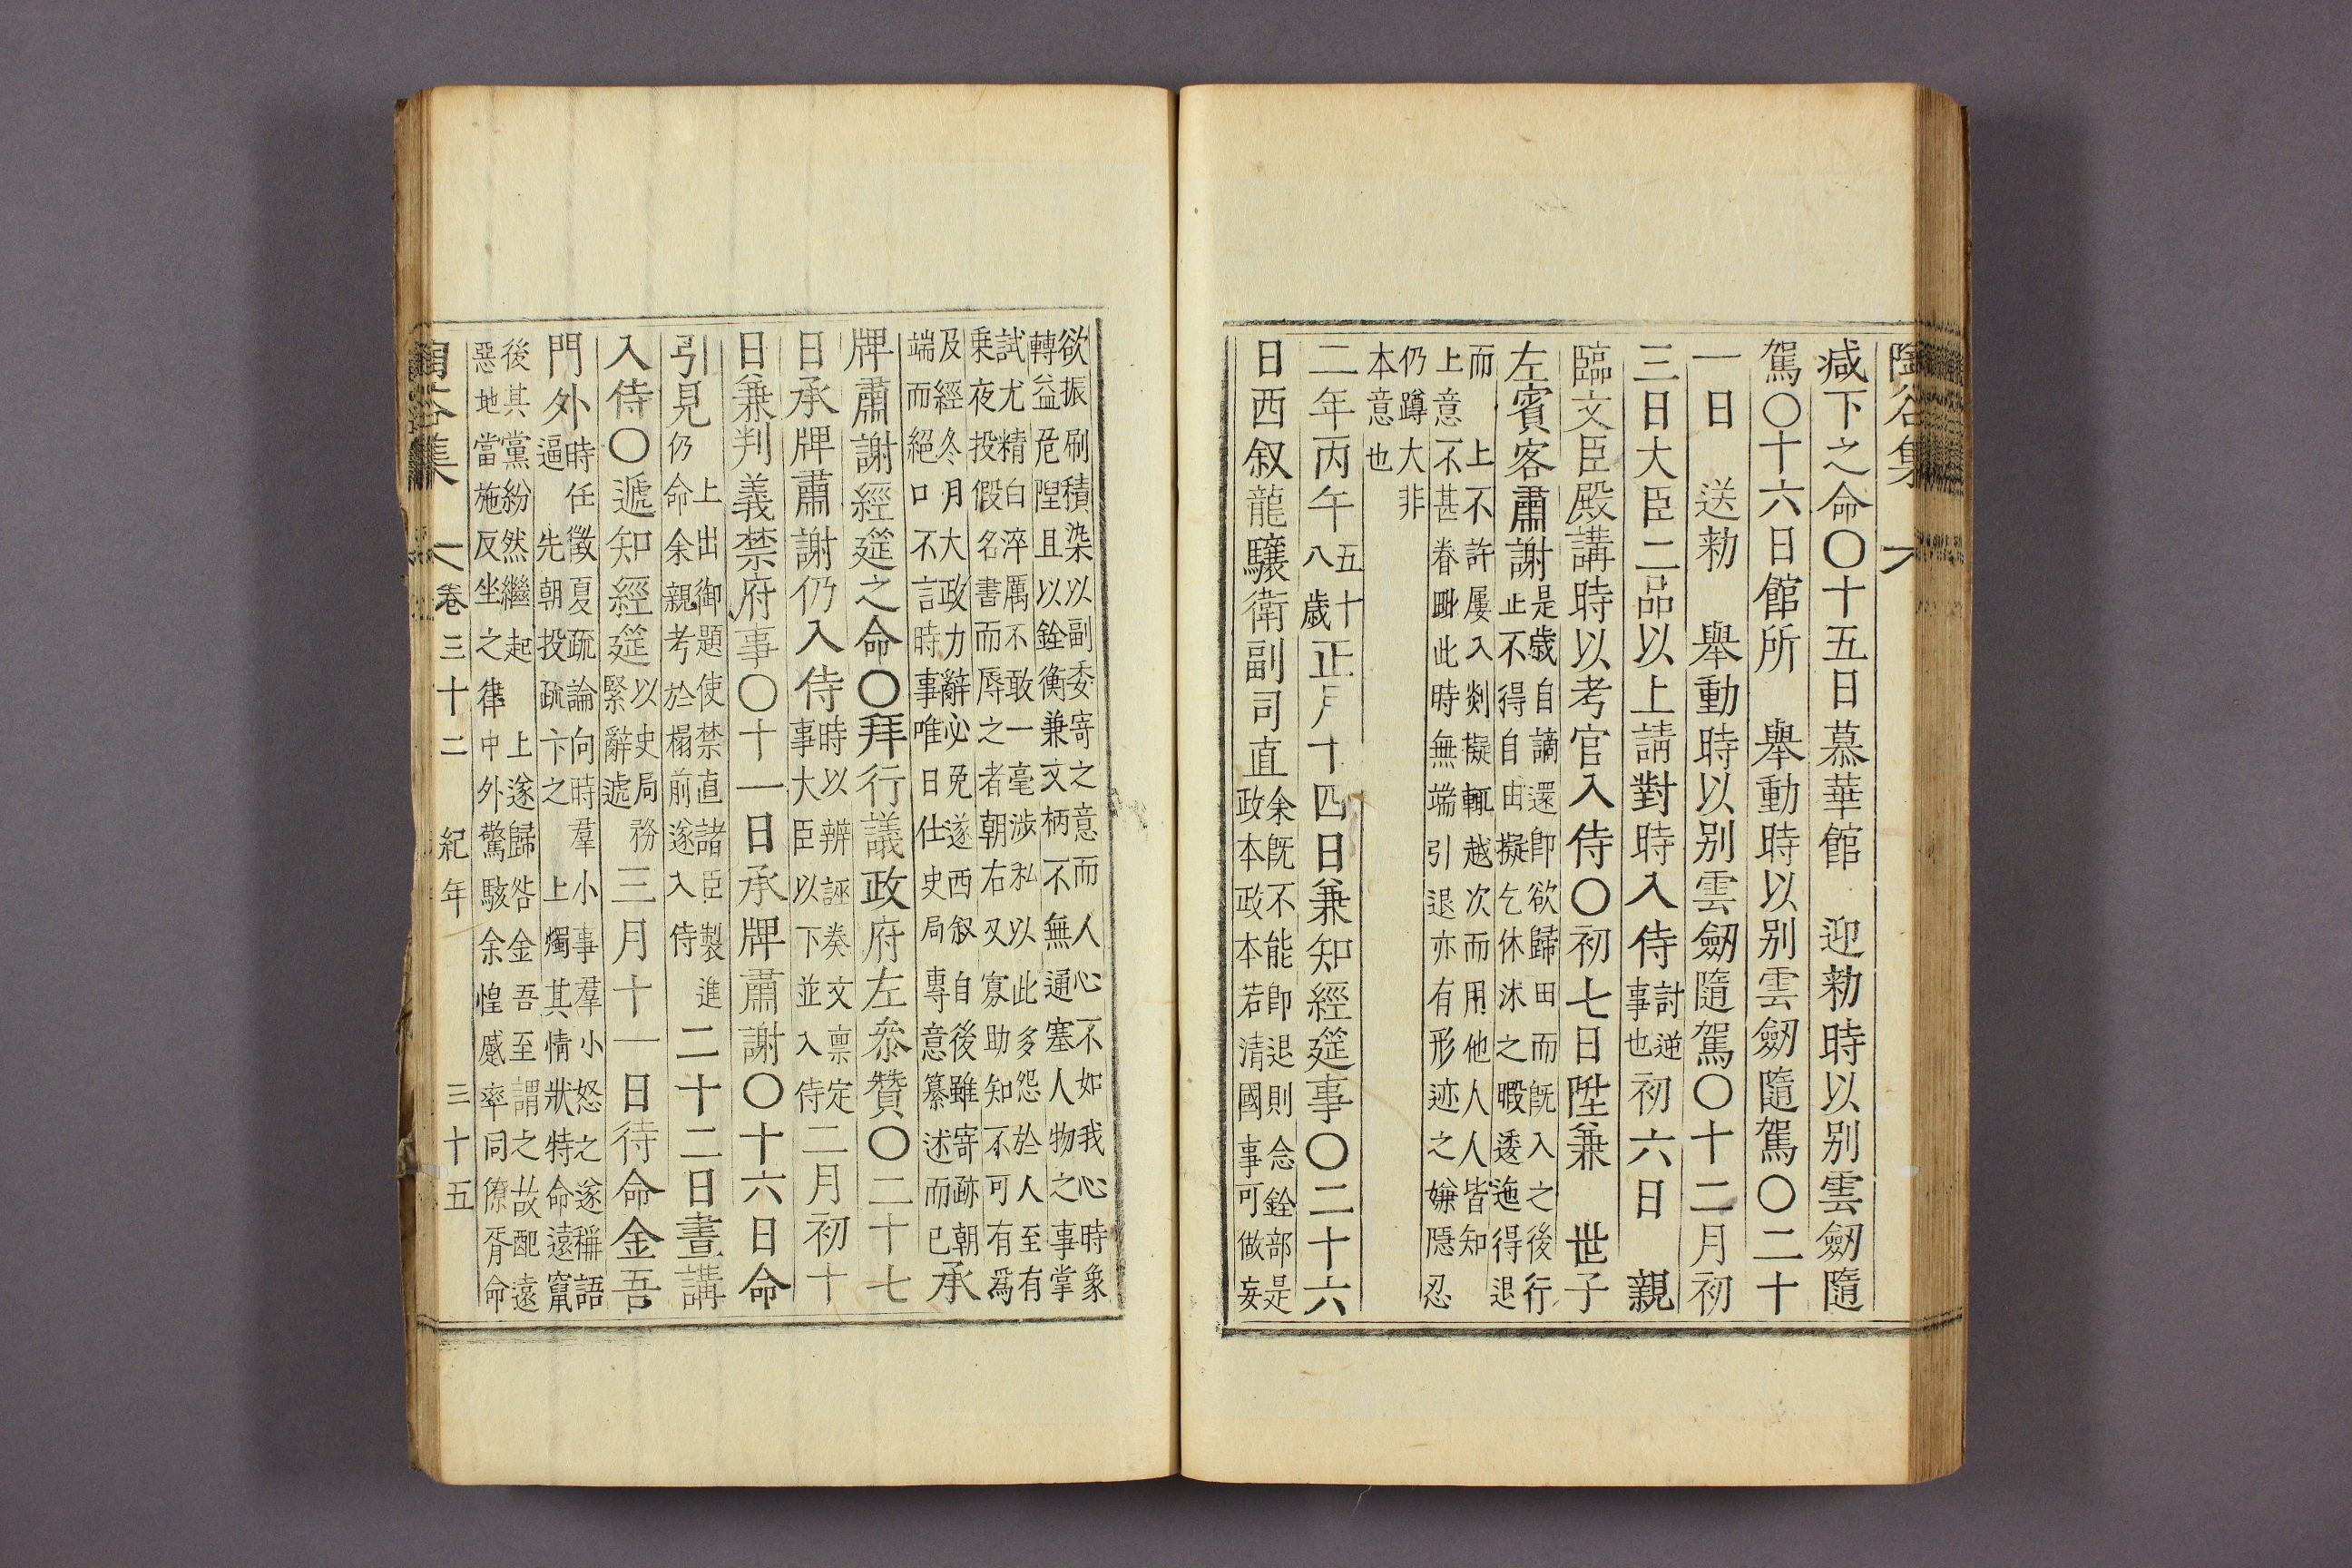 陶谷集
減下之命〇十五日慕華館 迎勑時以别雲劒隨
駕〇十六日館所 舉動時以别雲劒隨駕〇二十
一日 送勑 舉動時以别雲劒隨駕〇十二月初
三日大臣二品以上請對時入侍討逆事也初六日 親
臨文臣殿講時以考官入侍〇初七日陞兼 世子
左賓客肅謝是歲自謫還卽欲歸田而旣入之後行止不得自由擬乞休沐之暇逶迤得退
而 上不許屢入剡擬輒越次而用他人人皆知
上意不甚眷毗此時無端引退亦有形迹之嫌隱忍
仍蹲大非
本意也
二年丙午五十八歲正月十四日兼知經筵事〇二十六
日西叙龍驤衛副司直余旣不能卽退則念銓部是政本政本若清國事可做妄
欲振刷積染以副委寄之意而人心不如我心時象
轉益危陧且以銓衡兼文柄不無通塞人物之事掌
試尤精白淬厲不敢一毫涉私以此多怨於人至有
乗夜投假名書而辱之者朝右又寡助知不可有爲
及經冬月大政力辭必免遂西叙自後雖寄跡朝
端而絕口不言時事唯日仕史局專意纂述而已承
牌肅謝經筵之命〇拜行議政府左叅贊〇二十七
日承牌肅謝仍入侍時以辨誣奏文稟定事大臣以下並入侍二月初十
日兼判義禁府事〇十一日承牌肅謝〇十六日命
引見 上出御題使禁直諸臣製進仍命余親考於榻前遂入侍二十二日晝講
入侍〇遞知經筵以史局務緊辭遞三月十一日待命金吾
門外時任徵夏疏論向時羣小事羣小怒之遂稱語逼 先朝投疏卞之 上燭其情狀特命遠竄
後其黨紛然繼起 上遂歸咎金吾至謂之故配遠
惡地當施反坐之律中外驚駭余惶蹙率同僚胥命
陶谷集 卷三十二 紀年 三十五